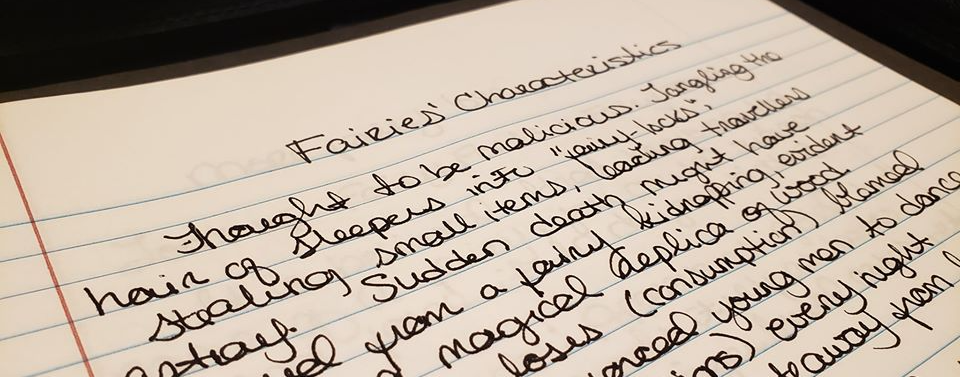 Fairies' Characteristics
Thought to be malicious. Tangling the
hair of sleepers into "fairy-locks",
stealing small items, leading travellers
astray. Sudden death might have
from a fairy kidnapping, evident
magical replica of wood
(consumption) blamed
young men to dance
every night